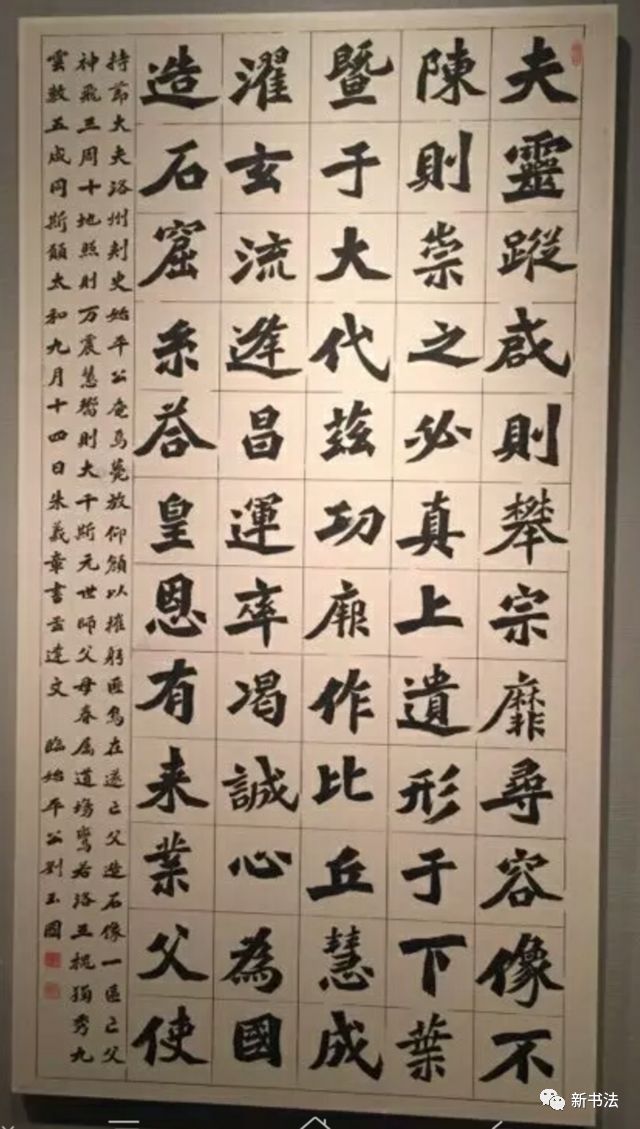 夫靈蹤啟則攀宗靡尋容像不
陳則崇之必真上遺形于下葉
暨于大代茲功厥作比丘慧成
濯玄流逢昌運率渴誠心為國
造石窟系荅皇恩有来業父使
持節大夫洛州刺史始平公奄焉薨放仰顔以摧躬匪烏在遂亡父造石像一區亡父
神飛三周十地照則万震慧響則大千斯元世師父母眷屬道塲鸞若洛三槐獨秀九
雲敷五成同斯願太和九月十四日朱義章書孟達文 臨始平公劉玉國
新书法